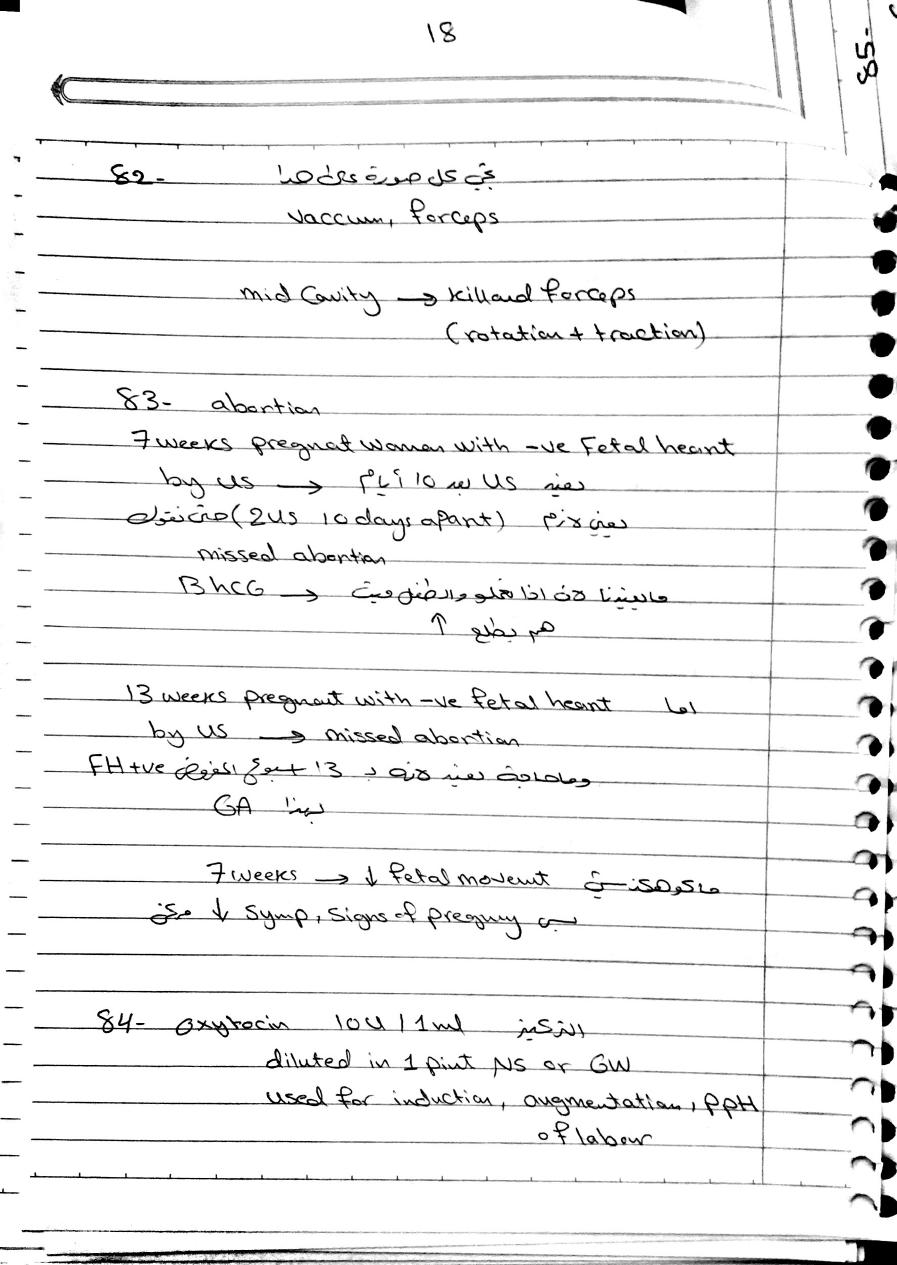 18
85-
82-
vaccum, forceps
mid Cavity → killand forceps
(rotation + traction)
83- abortion
7 weeks pregnat woman with -ve Fetal heart
by us → نعيد US بعد 10 أيام
يعني لازم (2US 10 days apart) حتى نقول
missed abortion
BhCG → ما يفيدنا لان اذا والطفل ميت
هم يطلع ↑
اما 13 weeks pregnant with -ve fetal heart
by US → missed abortion
وما حاجة نعيد لانه بـ 13 اسبوع المفروض FH +ve
بهذا GA
7 weeks → ↓ fetal movemt
بس ↓ symp, signs of pregncy ممكن
84- oxytocin 10U / 1ml التركيز
diluted in 1 pint NS or GW
used for induction, augmentation, PPH
of labour